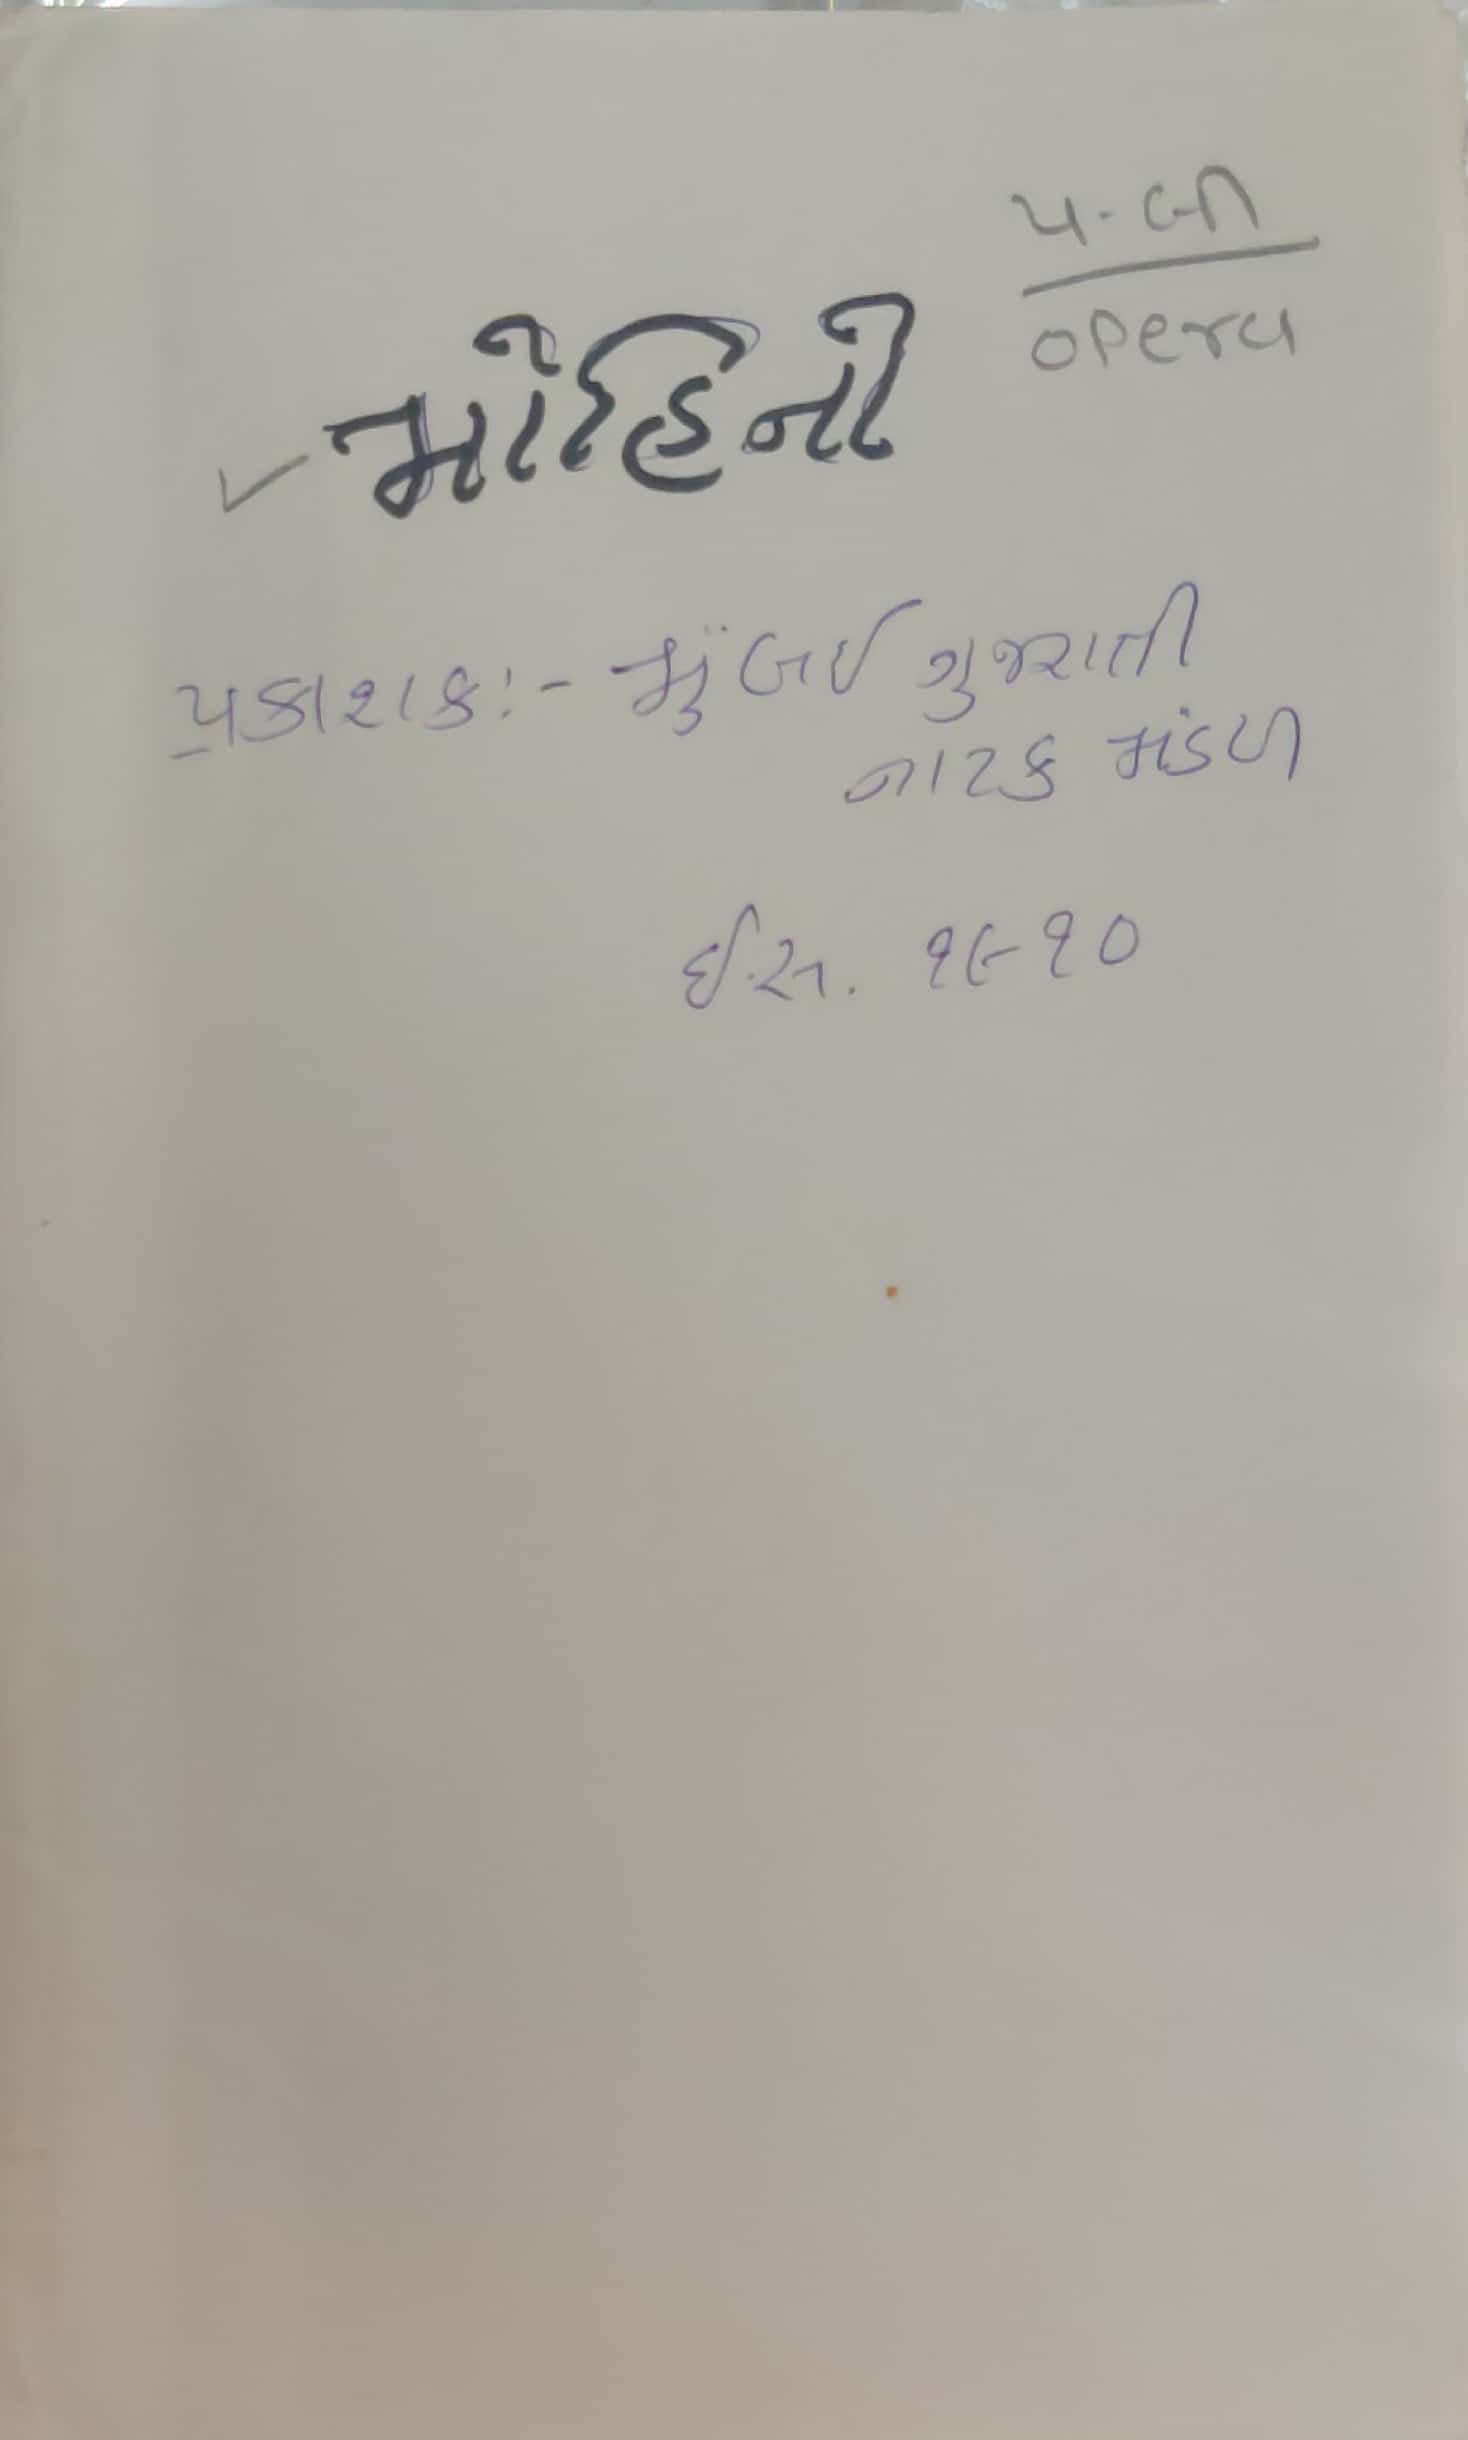 પ-બી
opera
મોહિની
પ્રકાશકઃ- મુંબઈ ગુજરાતી
નાટક મંડળી
ઈ.સ. ૧૯૧૦